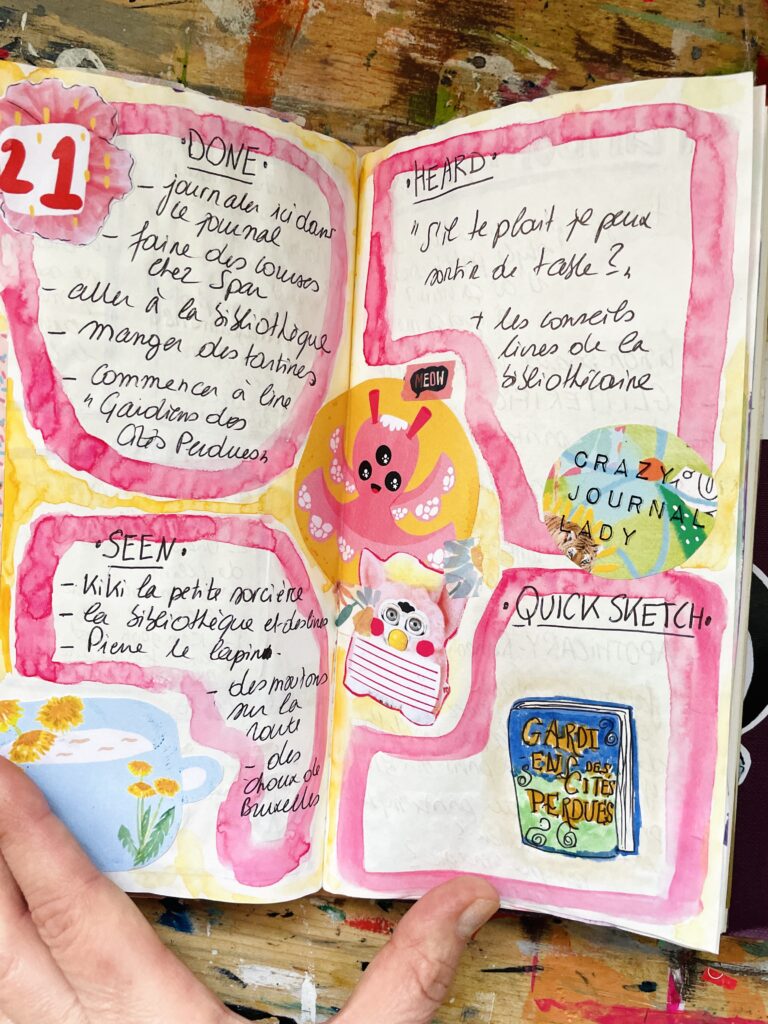 21
• DONE •
– journaler ici dans
le journal
– faire des courses
chez Spar
– aller à la bibliothèque
– manger des tartines
– commencer à lire
" Gardiens des
Cités Perdues "
• SEEN •
– Kiki la petite sorcière
– la bibliothèque et des livres
– Pierre le lapin
– des moutons
sur la
route
– des
choux de
Bruxelles
• HEARD •
" S'il te plait je peux
sortir de table ? "
+ les conseils
livres de la
bibliothécaire
MEOW
CRAZY
JOURNAL
LADY
• QUICK SKETCH •
GARDI
ENS DES
CITES
PERDUES